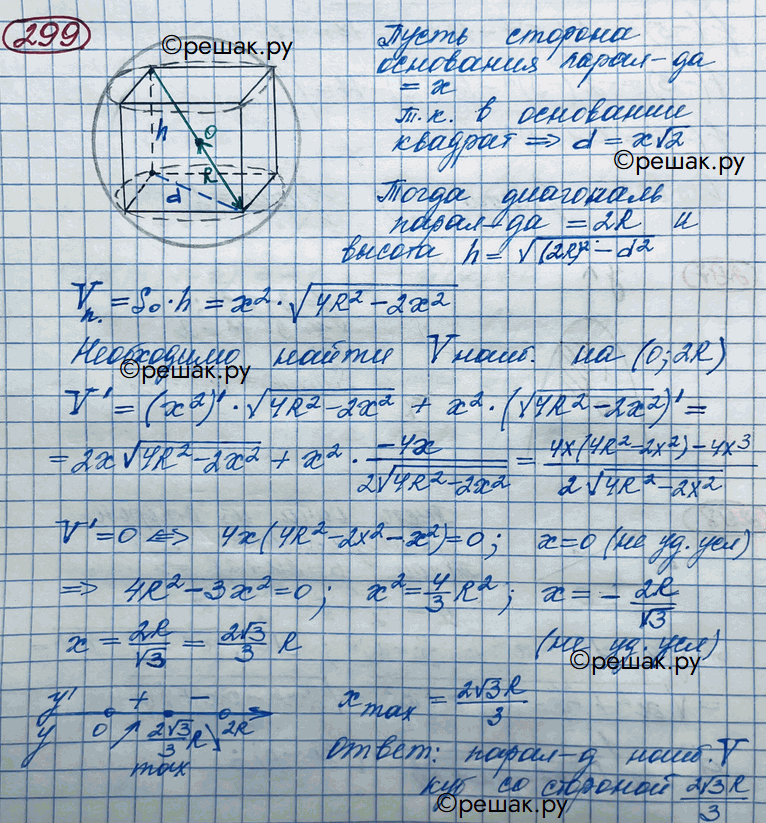 299
©решак.ру
Пусть сторона
основания парал-да
= x
т.к. в основании
квадрат => d = x√2
©решак.ру
h
O
R
d
Тогда диагональ
парал-да = 2R и
высота h = √((2R)² - d²)
Vп. = So · h = x² · √(4R² - 2x²)
Необходимо найти V наиб. на (0; 2R)
©решак.ру
V' = (x²)' · √(4R² - 2x²) + x² · (√(4R² - 2x²))' =
= 2x√(4R² - 2x²) + x² · -4x/(2√(4R² - 2x²)) = (4x(4R² - 2x²) - 4x³)/(2√(4R² - 2x²))
V' = 0 <=> 4x(4R² - 2x² - x²) = 0; x = 0 (не уд. усл)
=> 4R² - 3x² = 0; x² = 4/3 R²; x = - 2R/√3
x = 2R/√3 = 2√3/3 R (не уд. усл)
©решак.ру
y' + -
y 0 2√3/3 R 2R
max
xmax = 2√3R/3
Ответ: парал-д наиб. V
куб со стороной 2√3R/3
©решак.ру